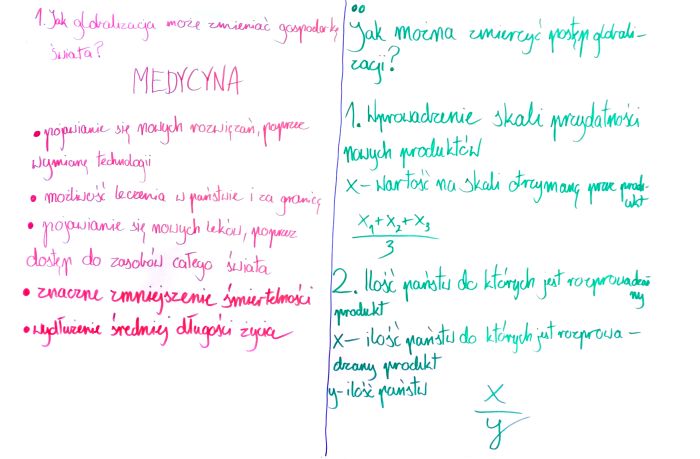 1. Jak globalizacja może zmieniać gospodarkę
świata?
MEDYCYNA
• pojawianie się nowych rozwiązań, poprzez
wymianę technologii
• możliwość leczenia w państwie i za granicą
• pojawianie się nowych leków, poprzez
dostęp do zasobów całego świata
• znaczne zmniejszenie śmiertelności
• wydłużenie średniej długości życia
Jak można zmierzyć postęp globali-
zacji?
1. Wprowadzenie skali przydatności
nowych produktów
x - wartość na skali otrzymaną przez produ-
kt
x₁+x₂+x₃
3
2. Ilość państw do których jest rozprowadzany
produkt
x - ilość państw do których jest rozprowa-
dzany produkt
y - ilość państw
x
y